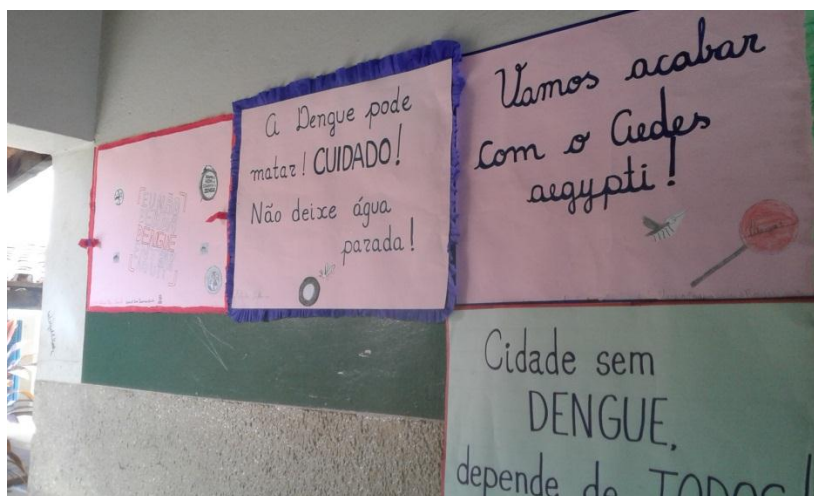 DENGUE
A Dengue pode
matar! CUIDADO!
Não deixe água
parada!
Vamos acabar
com o Aedes
aegypti!
Cidade sem
DENGUE,
depende de TODOS!